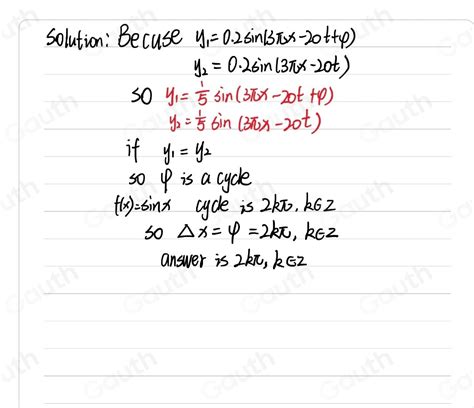 Solution: Becuse y₁=0.2sin(3πx-20t+φ)
y₂=0.2sin(3πx-20t)
SO y₁=1/5 sin(3πx-20t+φ)
y₂=1/5 sin(3πx-20t)
if y₁=y₂
so φ is a cycle
f(x)=sinx cycle is 2kπ, k∈Z
so △x=φ=2kπ, k∈Z
answer is 2kπ, k∈Z
Gauth